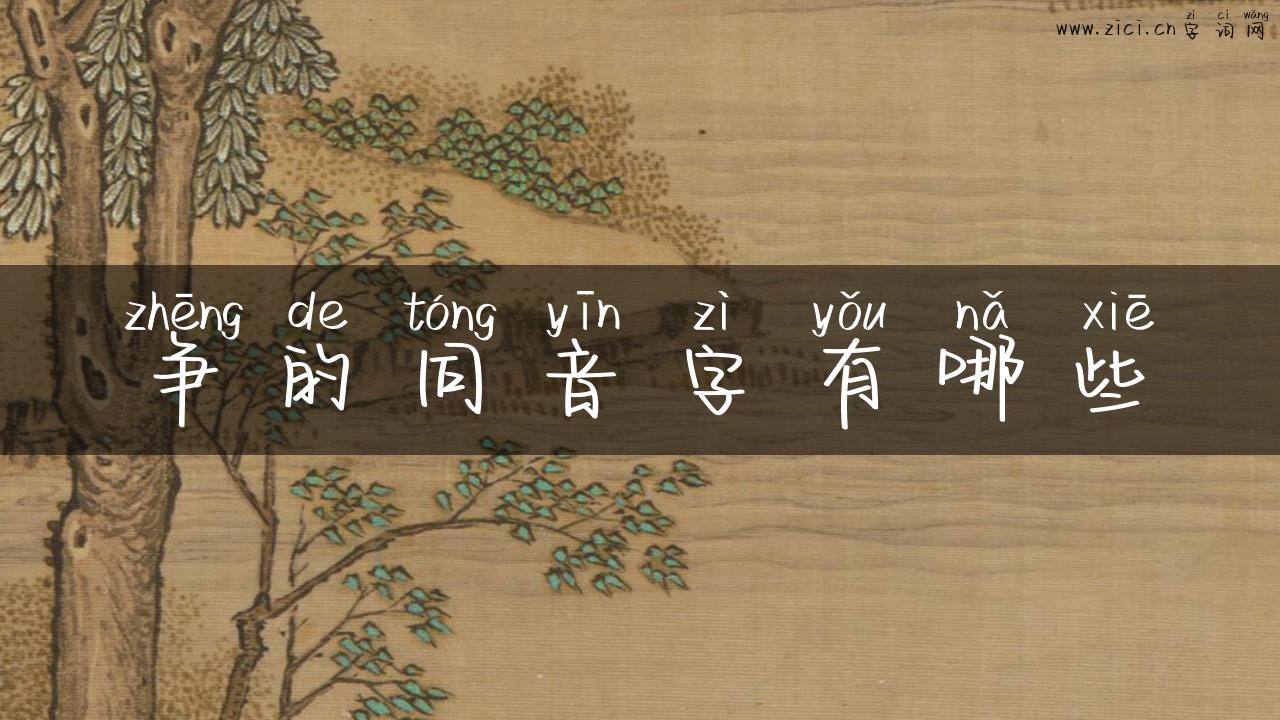 zì cí wǎng
www.zici.cn 字词网
zhēng de tóng yīn zì yǒu nǎ xiē
争的同音字有哪些